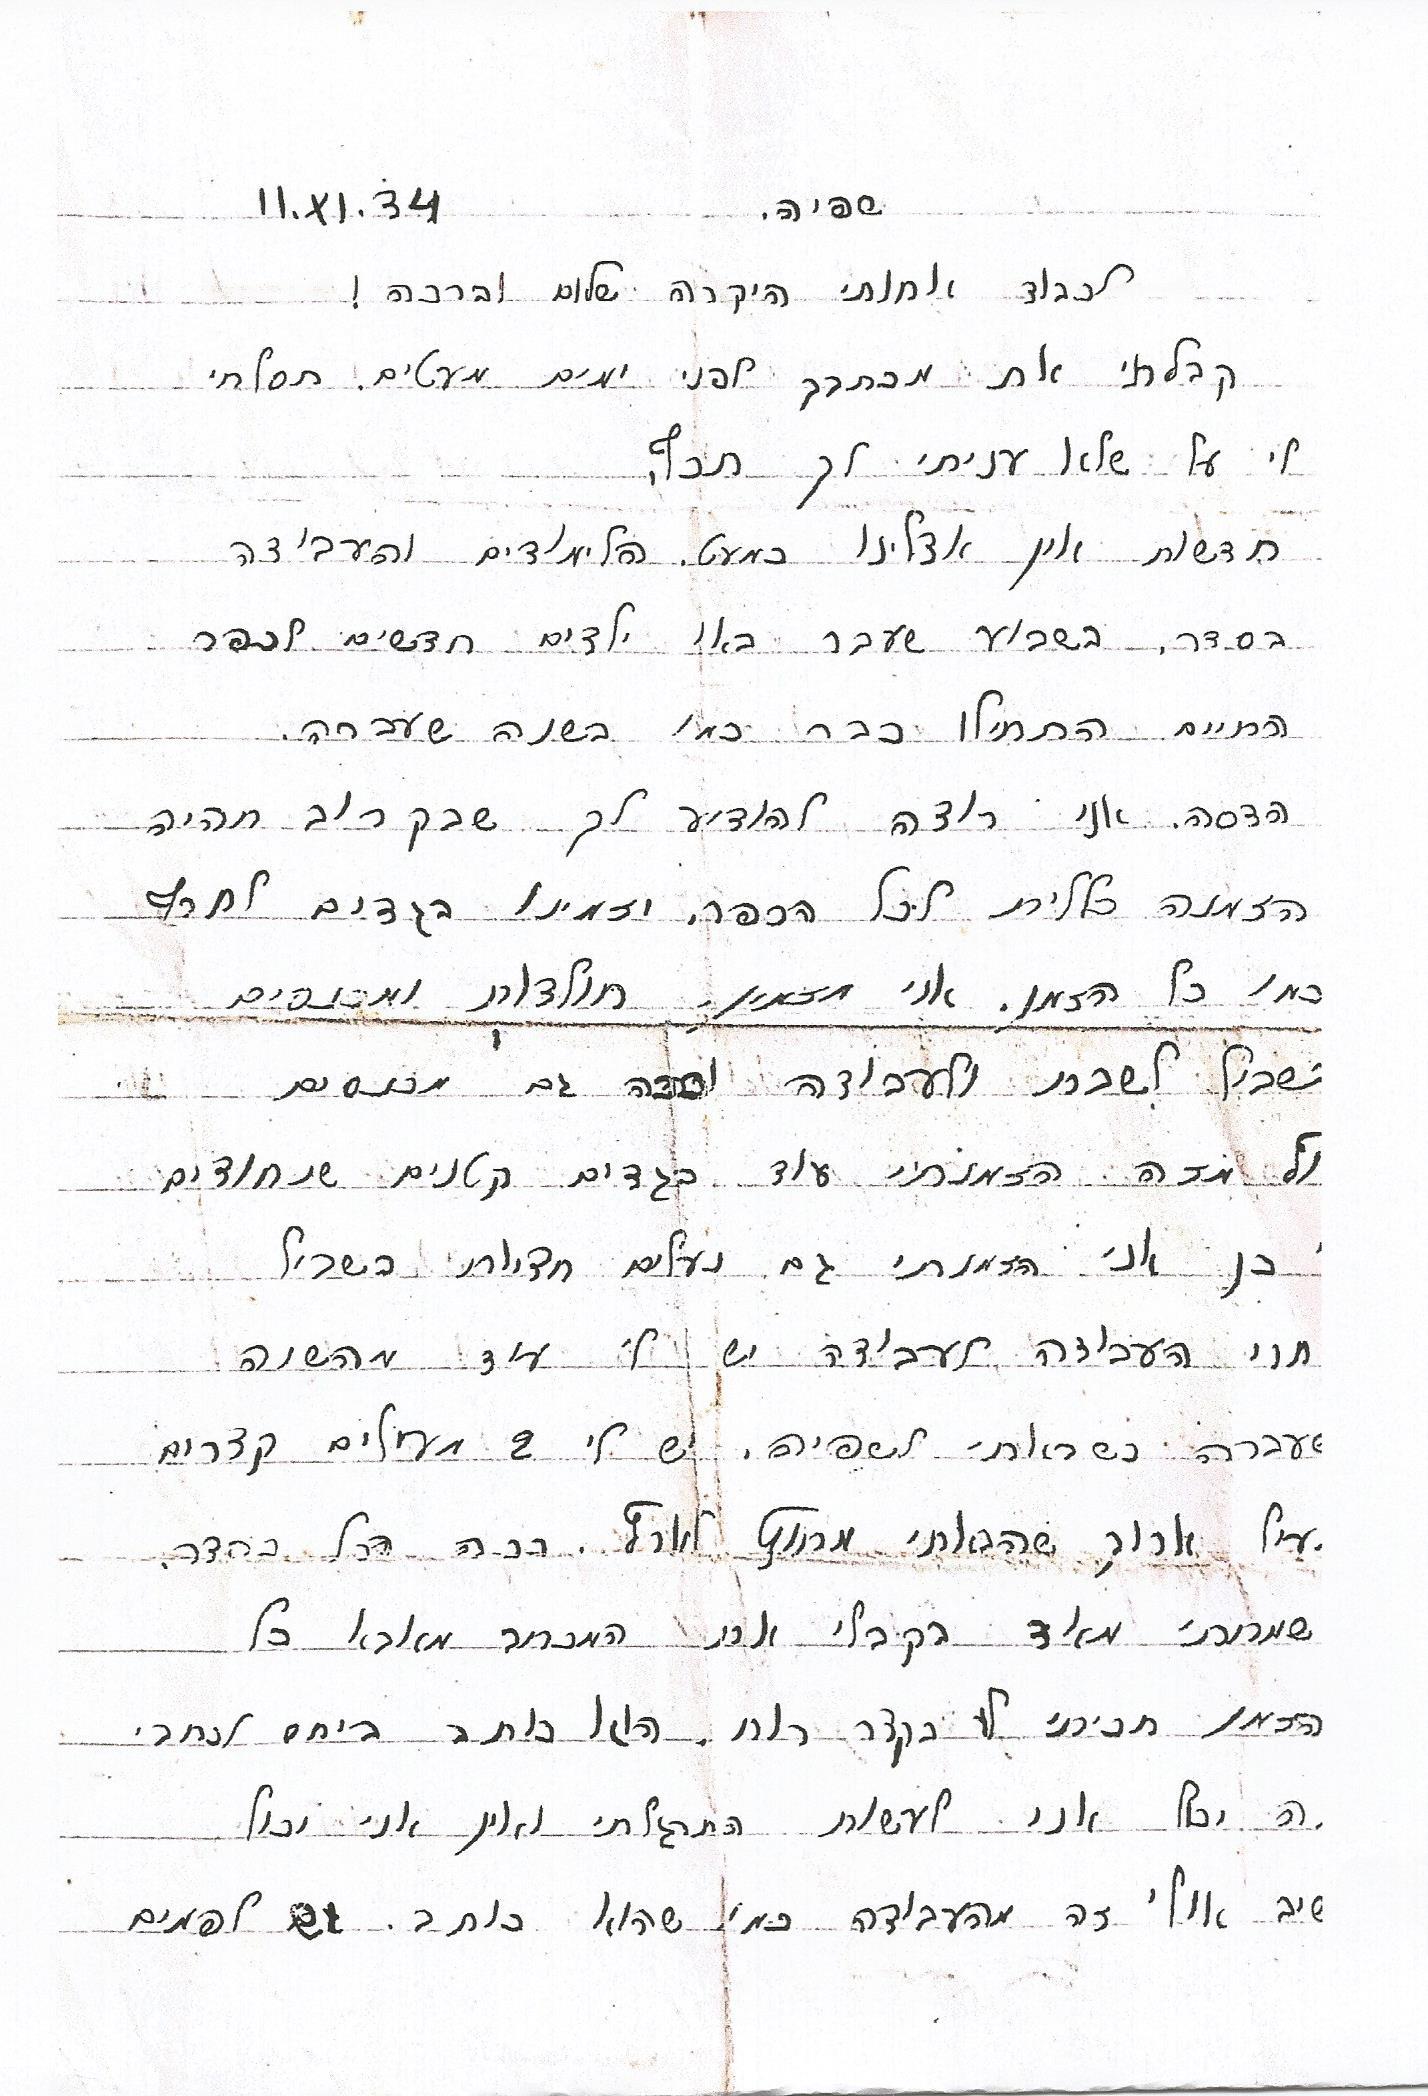 שפיה. 11.XI.34
לכבוד אחותי היקרה שלום וברכה!
קבלתי את מכתבך לפני ימים מעטים. תסלחי
לי על שלא עניתי לך תכף,
חדשות אין אצלינו כמעט. הלימודים והעבודה
בסדר. בשבוע שעבר באו ילדים חדשים לכפר
החיים התחילו כבר כמו בשנה שעברה.
הדסה. אני רוצה להודיע לך שבקרוב תהיה
הזמנה כללית לכל הכפר. יזמינו בגדים לחרף
כמו כל הזמן. אני מזמין חולצות ומכנסים
בשביל לשבת ולעבודה גם מכנסים
מזה הזמנתי עוד בגדים קטנים שנחוצים
כן אני הזמנתי גם נעלים חדשות בשביל
העבודה לעבודה יש לי עוד מהשנה
שעברה כשבאתי לשפיה. יש לי 2 מעילים קצרים
ארוך שהבאתי מחוץ לארץ. ככה הכל בסדר.
שמחתי מאוד בקבלי את המכתב מאבא כל
הזמן חכיתי לו בקצר רוח. הוא כותב ביחס לכתבי
.ה יכול אני לעשות התרגלתי ואין אני יכול
אולי זה מהעבודה כמו שהוא כותב. גם לפמים